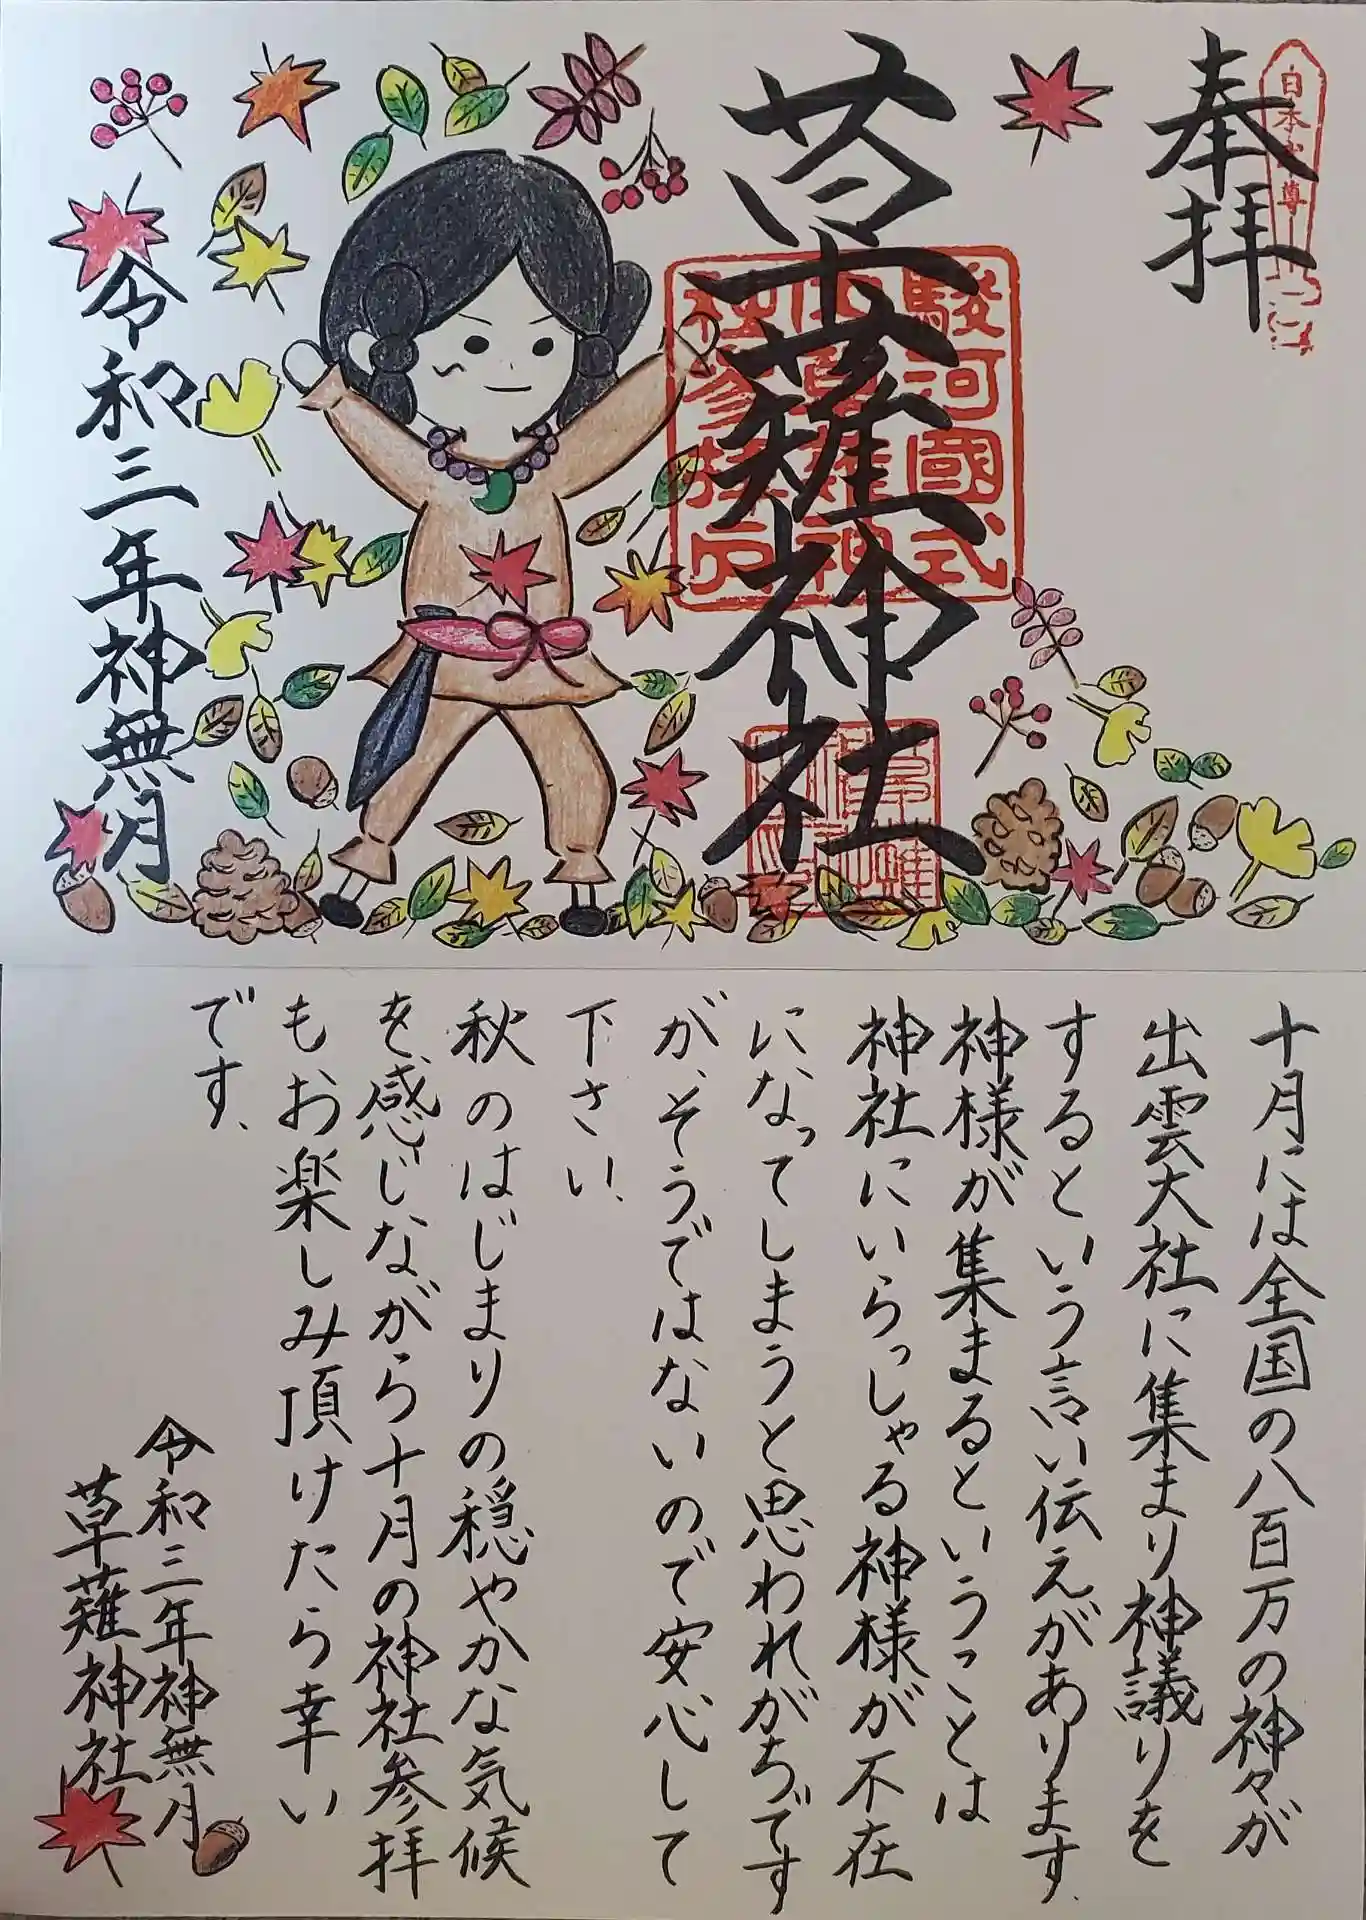 奉拝
草薙神社
駿河國式
令和三年神無月
十月には全国の八百万の神々が
出雲大社に集まり神議りを
するという言い伝えがあります、
神様が集まるということは
神社にいらっしゃる神様が不在
になってしまうと思われがちです
が、そうではないので安心して
下さい、
秋のはじまりの穏やかな気候
を感じながら十月の神社参拝
もお楽しみ頂けたら幸い
です、
令和三年神無月
草薙神社